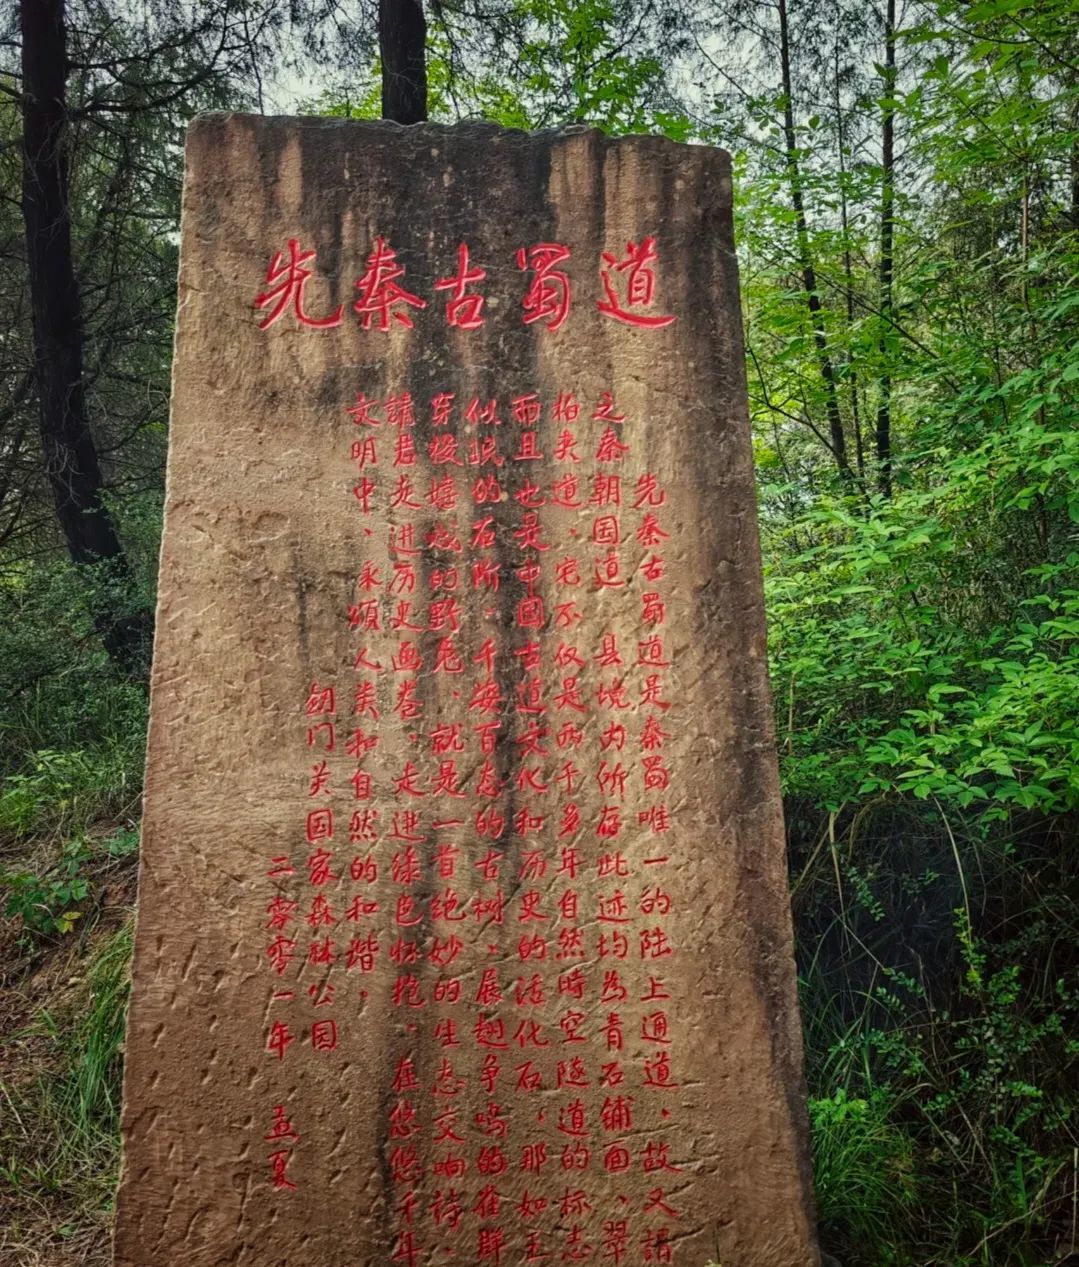 先秦古蜀道
先秦古蜀道是秦蜀唯一的陆上通道、故又謂
之秦朝国道。县境内所存此迹均為青石铺面、翠
柏夹道、它不仅是两千多年自然時空隧道的标志
而且也是中國古道文化和历史的活化石、那如玉
似珉的石阶，千姿百态的古树，展翅争鸣的雀群
穿梭嬉戏的野兔、就是一首绝妙的生态交响诗、
請君走进历史画卷、走进绿色怀抱、在悠悠千年
文明中、承頌人类和自然的和谐，
剑门关国家森林公园
二零零一年 孟夏